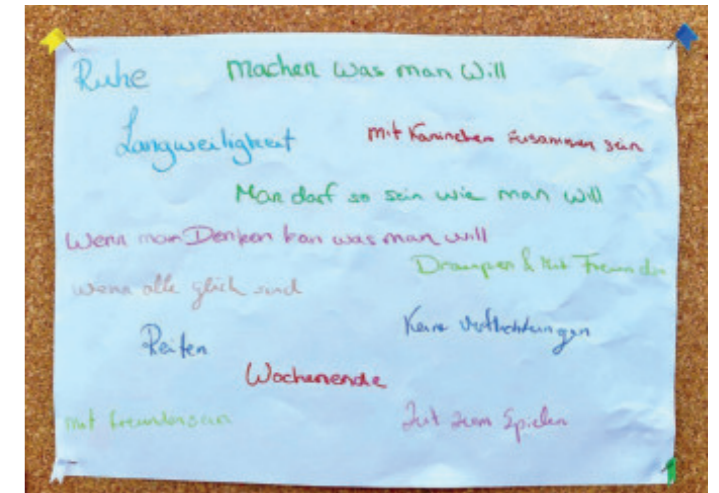 Ruhe
Machen Was man Will
Langweiligkeit
mit Kaninchen zusammen sein
Man darf so sein wie man will
Wenn man Denken kan was man will
Draußen & Mit Freunden
wenn alle glich sind
Reiten
Keine
Wochenende
mit freunden sein
Zeit zum Spielen